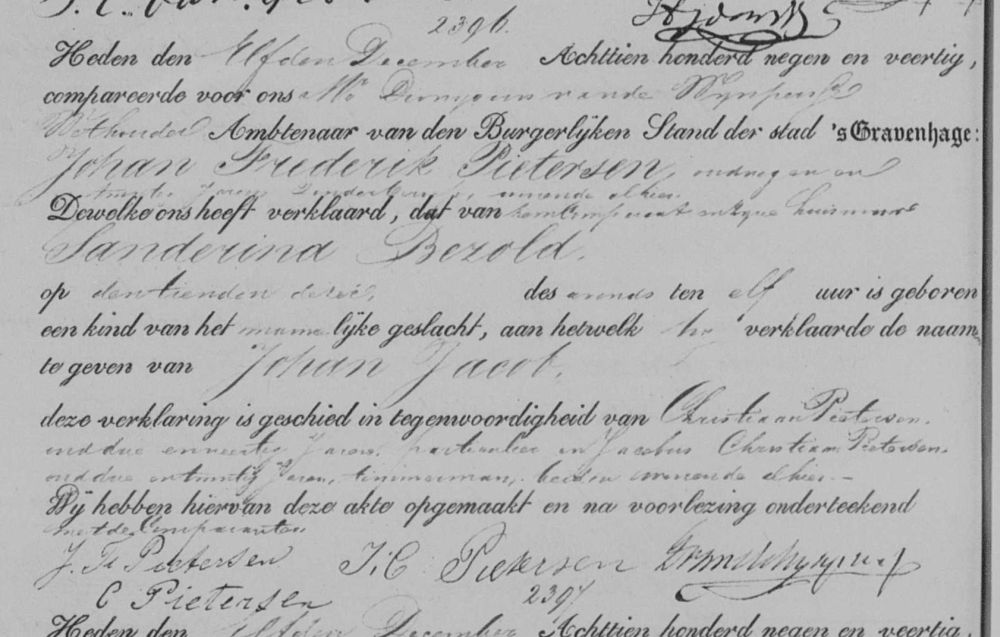 2396.
Heden den Elfden December Achttien honderd negen en veertig,
compareerde voor ons Mr Dionysius van de Wijnpersse
Wethouder Ambtenaar van den Burgerlijken Stand der stad 's Gravenhage:
Johan Frederik Pietersen, oud negen en
twintig Jaren wonende alhier.
Dewelke ons heeft verklaard, dat van hem Comparant en zijne huisvrouw
Sanderina Bezold.
op den tienden dezer, des avonds ten elf uur is geboren
een kind van het mannelijke geslacht, aan hetwelk hij verklaarde de naamen
te geven van Johan Jacob.
deze verklaring is geschied in tegenwoordigheid van Christiaan Pietersen.
oud drie en veertig Jaren, particulier en Jacobus Christiaan Pietersen.
oud drie en twintig Jaren, timmerman, beiden wonende alhier.-
Wij hebben hiervan deze akte opgemaakt en na voorlezing onderteekend
met de Comparanten
J. F. Pietersen J. C Pietersen
C Pietersen 2397
Heden den Elfden December Achttien honderd negen en veertig,